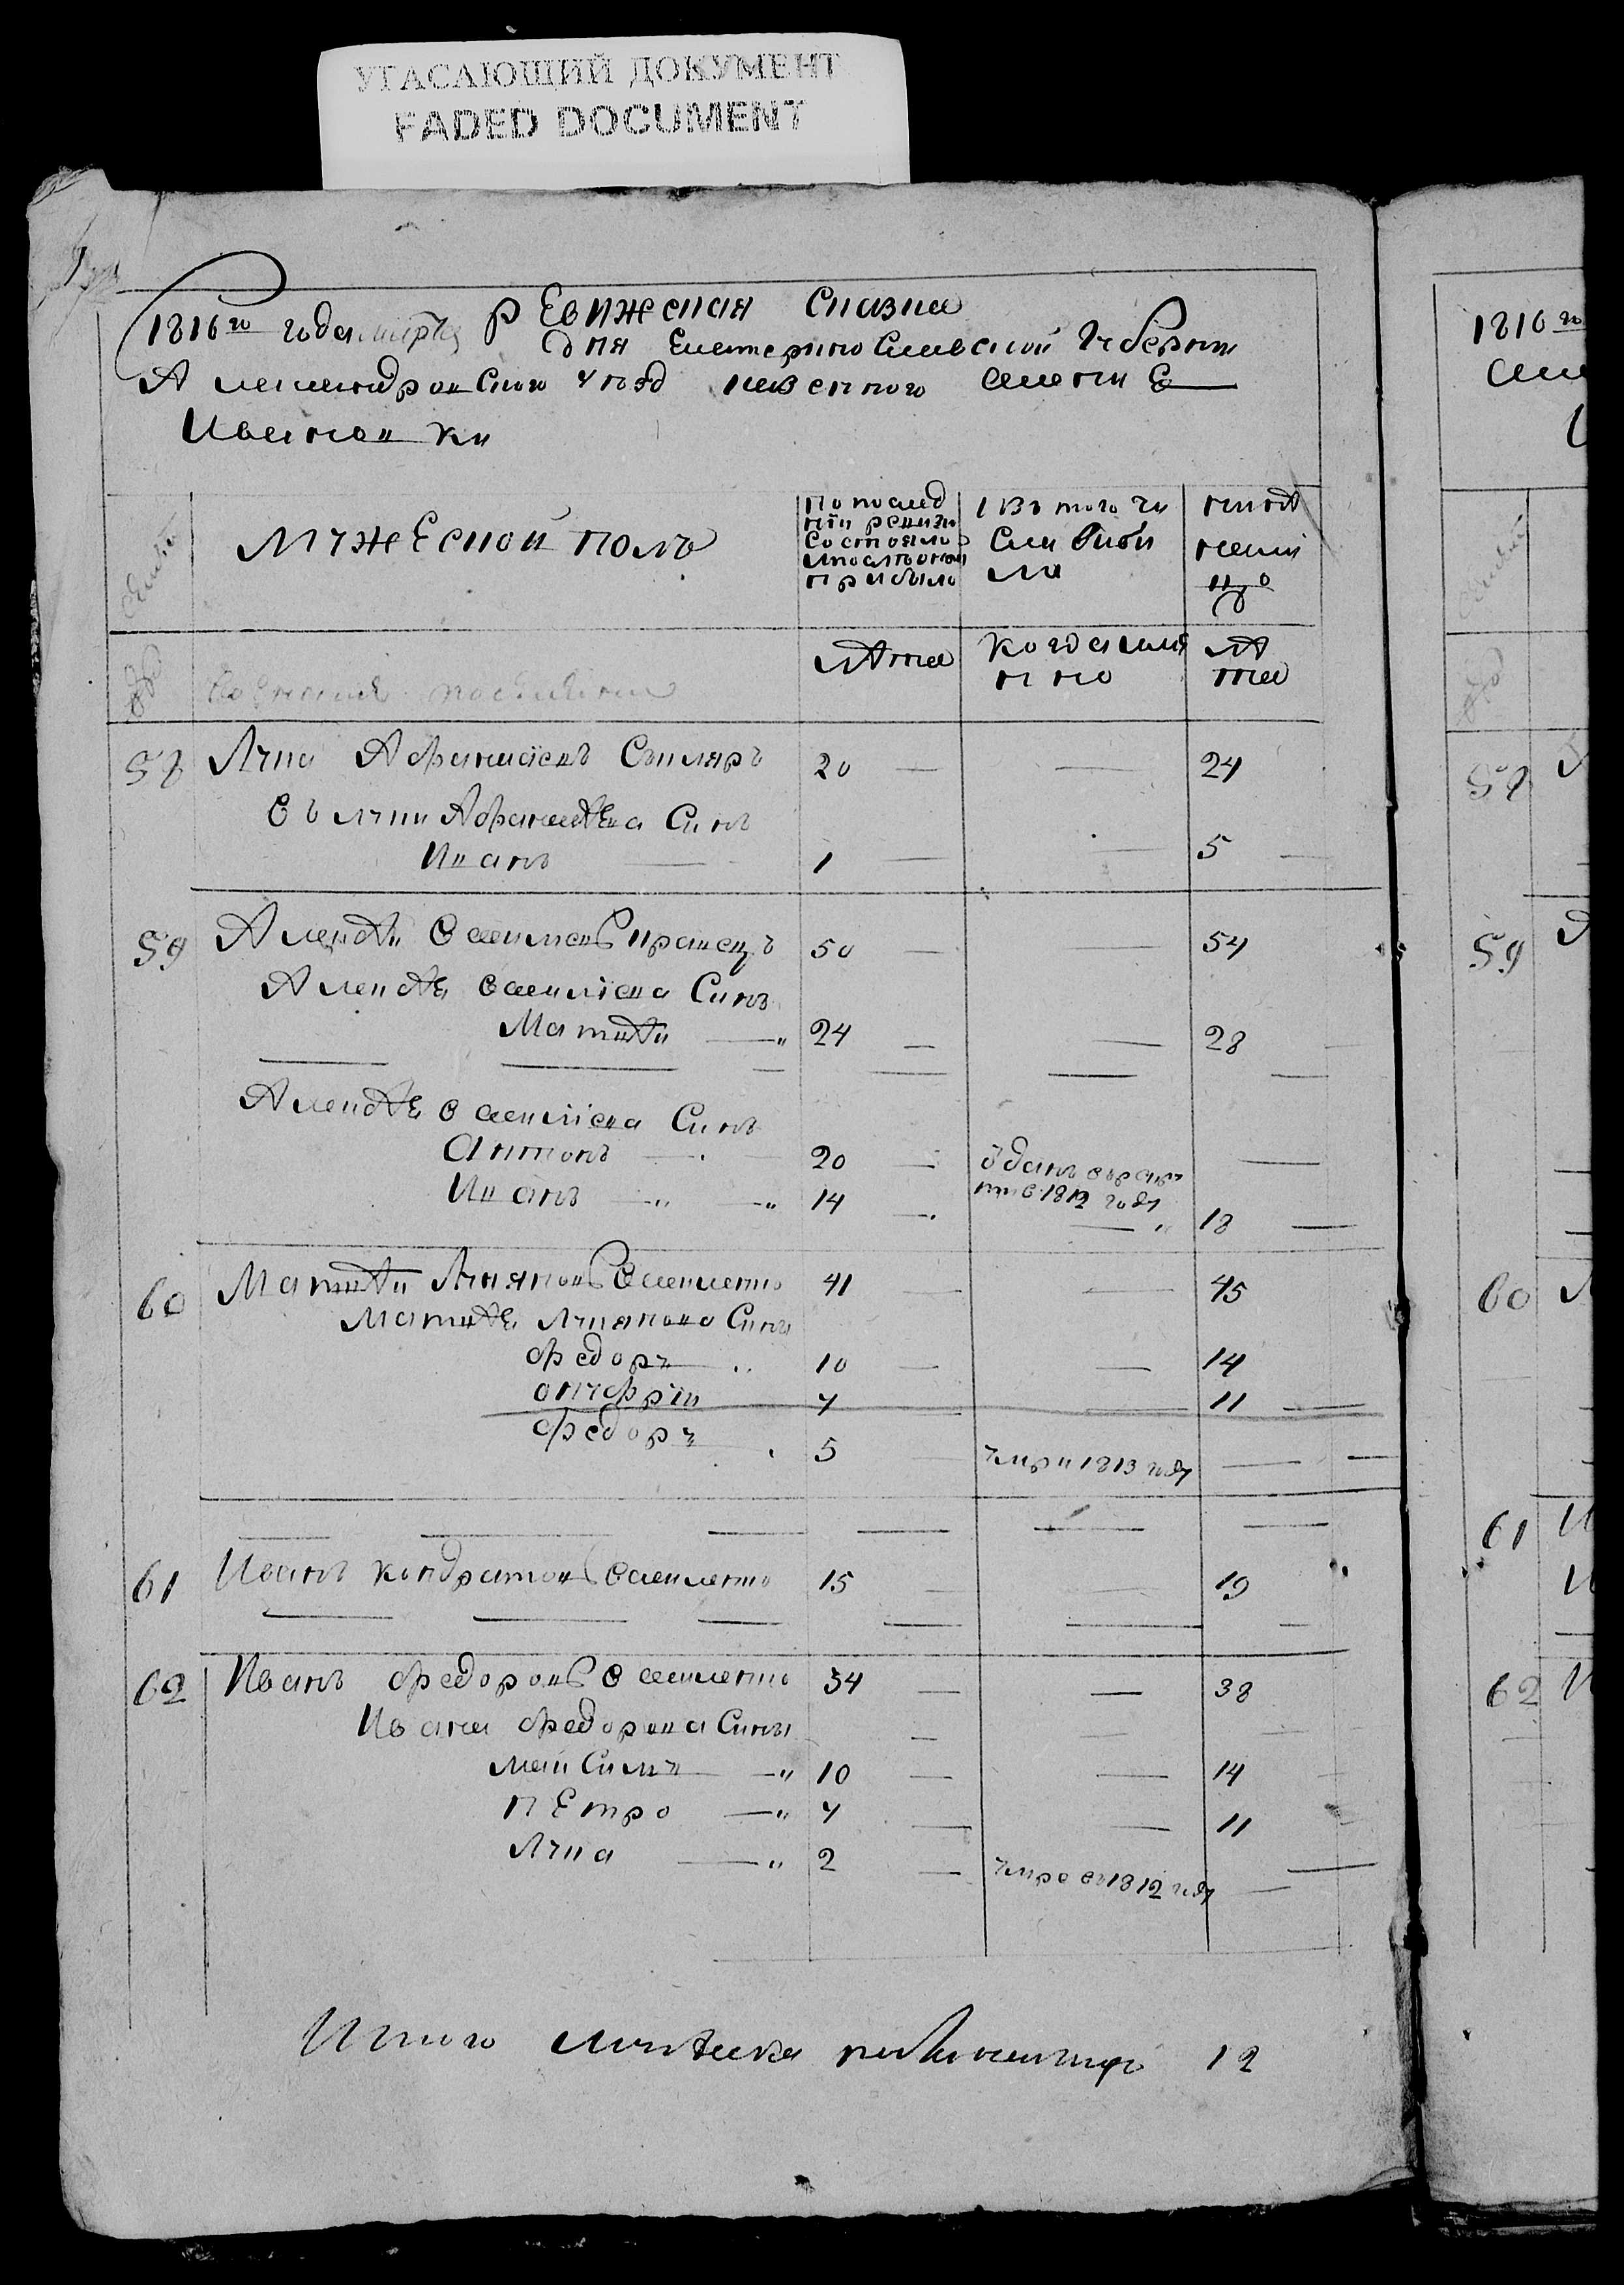 УГАСАЮЩИЙ ДОКУМЕНТ
FADED DOCUMENT
1816го года марта ревижская сказка
для Екатеринославской губерни
Александровского уезд казенного селени е
Ивановки
семьи
мужеской полъ
По послед
ней ревизи
состояло
и после оной
прибыло
Изъ того чи
сла выбы
ло
ныне
на ли
цо
лета
когда име
нно
ле
та
58 Лука Афанасiевъ Столяръ 20 — — 24
Луки Афанасiева Синъ
Иванъ — 1 — — 5 —
59 Алексей Василiевъ 50 — — 54
Алексея Василiева Синъ
Матвей — 24 — — 28 —
Алексея Василiева Синъ
Антонъ — 20 — зданъ врекру
ти в 1812 году —
Иванъ — 14 — — 18 —
60 Матвей Лукяновъ Василенко 41 — — 45
Матвея Лукянова Сины
Федоръ 10 — — 14
онуфрiи 7 — — 11 —
Федоръ 5 умри 1813 году — —
61 Иванъ кондратовъ Василенко 15 — — 19
62 Иванъ Федоровъ Василенко 34 — — 38
Ивана Федорова Сины
Максимъ — 10 — — 14 —
Петро — 7 — — 11
Лука — 2 — умре въ 1812 году —
Итого мужеска на лицо 12
1816го
58
59
60
61
62